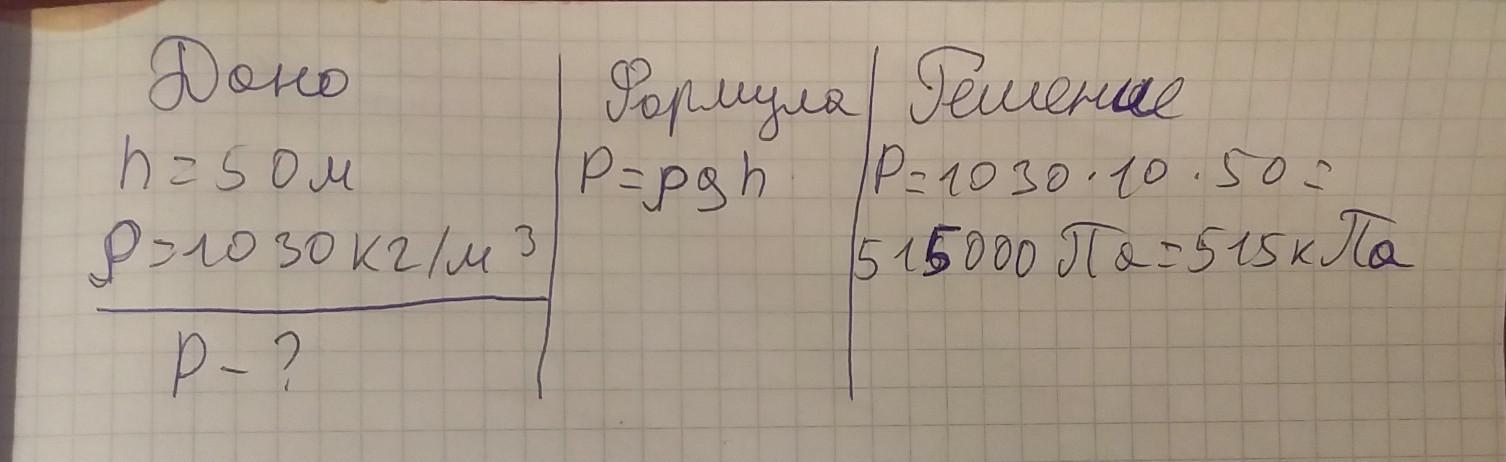 Дано
h = 50 м
ρ = 1030 кг/м³
P - ?
Формула
P = ρgh
Решение
P = 1030 · 10 · 50 =
515000 Па = 515 кПа